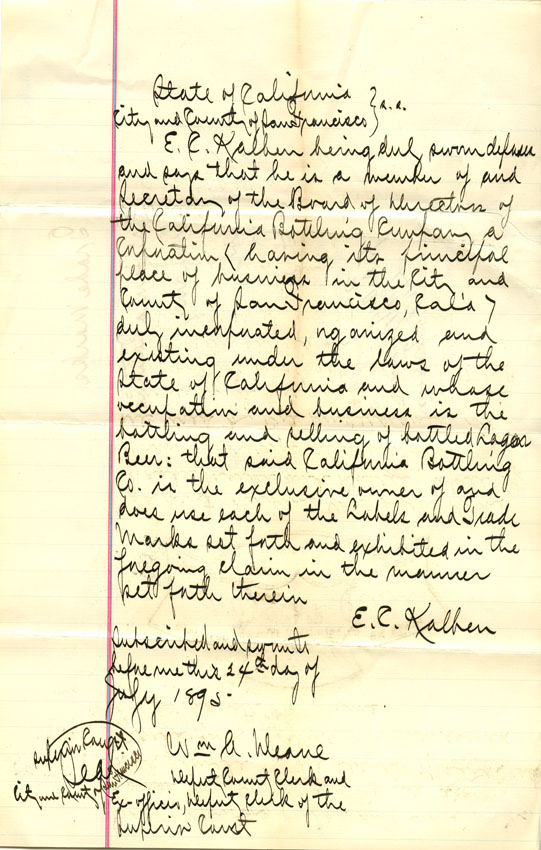 State of California } s.s.
City and County of San Francisco }
E. C. Kalben being duly sworn deposes
and says that he is a member of and
Secretary of the Board of Directors of
the California Bottling Company a
Corporation ( having its principal
place of business in the City and
County of San Francisco, Cal'a )
duly incorporated, organized and
existing under the laws of the
State of California and whose
occupation and business is the
bottling and selling of bottled Lager
Beer: that said California Bottling
Co. is the exclusive owner of and
does use each of the Labels and Trade
Marks set forth and exhibited in the
foregoing claim in the manner
set forth therein
E. C. Kalben
Subscribed and sworn to
before me this 24th day of
July 1895.
Wm A. Deane
Deputy County Clerk and
Ex-officio, Deputy Clerk of the
Superior Court
Superior Court
Seal
City and County of San Francisco